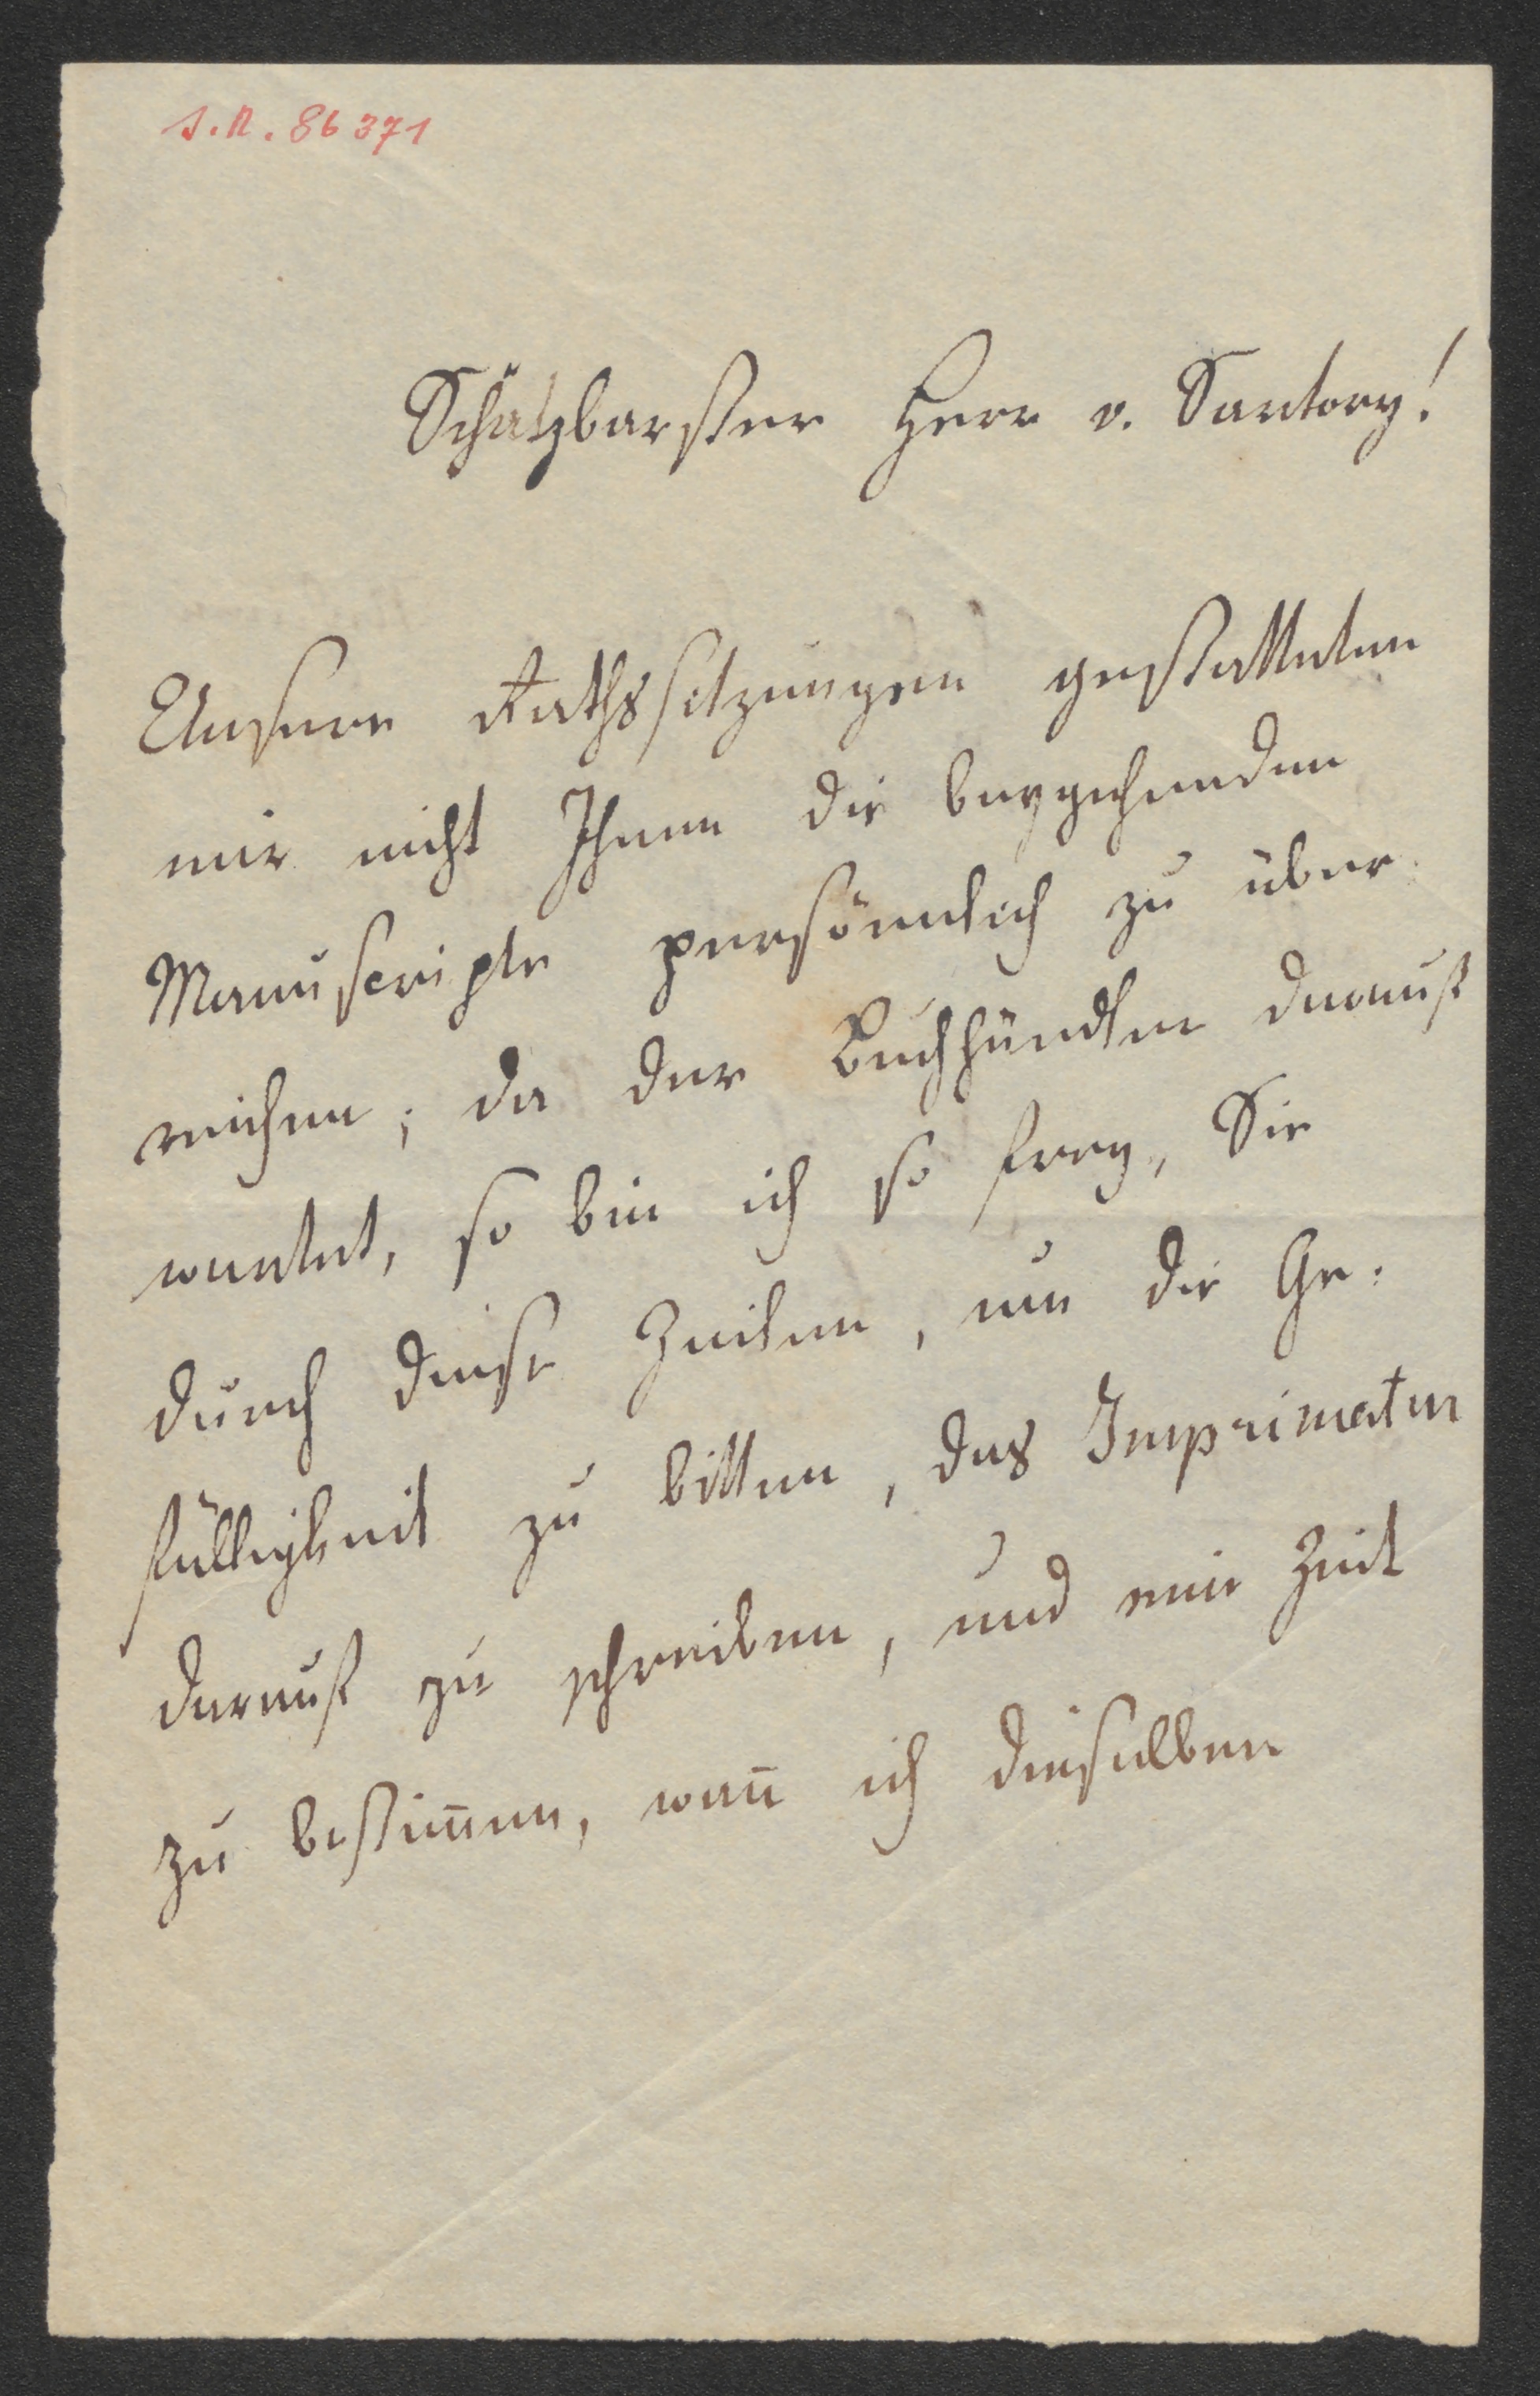 I.N. 86371
Schätzbarster Herr v. Sartory!
Unsere Rathssitzungen gestatteten
mir nicht Ihnen die beygehenden
Manuscripte persönnlich zu über
reichen; da der Buchhändler darauf
wartet, so bin ich so frey, Sie
durch diese Zeilen, um die Ge:
fälligkeit zu bitten, das Imprimatur
darauf zu schreiben, und eine Zeit
zu bestim̅en, wan̅ ich dieselben